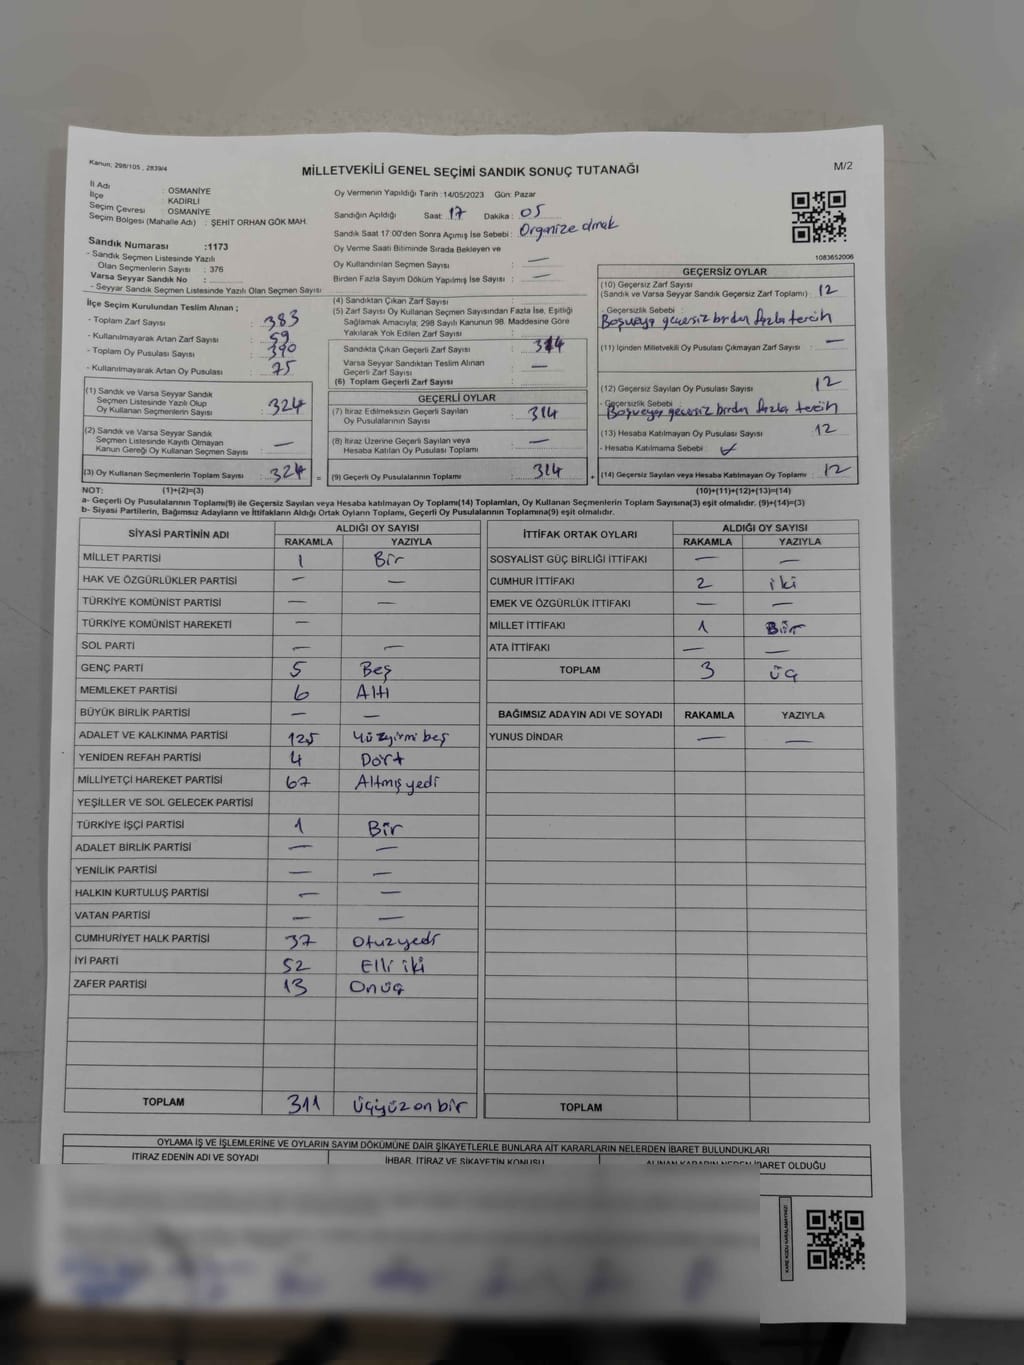 Kanun: 298/105 , 2839/4
MİLLETVEKİLİ GENEL SEÇİMİ SANDIK SONUÇ TUTANAĞI
M/2
İl Adı : OSMANİYE
İlçe : KADİRLİ
Seçim Çevresi : OSMANİYE
Seçim Bölgesi (Mahalle Adı) : ŞEHİT ORHAN GÖK MAH.
Sandık Numarası :1173
- Sandık Seçmen Listesinde Yazılı
Olan Seçmenlerin Sayısı : 376
Varsa Seyyar Sandık No :
- Seyyar Sandık Seçmen Listesinde Yazılı Olan Seçmen Sayısı
Oy Vermenin Yapıldığı Tarih :14/05/2023 Gün: Pazar
Sandığın Açıldığı Saat: 17 Dakika : 05
Sandık Saat 17:00'den Sonra Açımış İse Sebebi : Organize olmak
Oy Verme Saati Bitiminde Sırada Bekleyen ve
Oy Kullandırılan Seçmen Sayısı : —
Birden Fazla Sayım Döküm Yapılmış İse Sayısı : —
1083652006
İlçe Seçim Kurulundan Teslim Alınan ;
- Toplam Zarf Sayısı : 383
- Kullanılmayarak Artan Zarf Sayısı : 59
- Toplam Oy Pusulası Sayısı : 390
- Kullanılmayarak Artan Oy Pusulası : 75
(1) Sandık ve Varsa Seyyar Sandık
Seçmen Listesinde Yazılı Olup
Oy Kullanan Seçmenlerin Sayısı : 324
(2) Sandık ve Varsa Seyyar Sandık
Seçmen Listesinde Kayıtlı Olmayan
Kanun Gereği Oy Kullanan Seçmen Sayısı : —
(3) Oy Kullanan Seçmenlerin Toplam Sayısı : 324 =
(4) Sandıktan Çıkan Zarf Sayısı :
(5) Zarf Sayısı Oy Kullanan Seçmen Sayısından Fazla İse, Eşitliği
Sağlamak Amacıyla; 298 Sayılı Kanunun 98. Maddesine Göre
Yakılarak Yok Edilen Zarf Sayısı :
Sandıkta Çıkan Geçerli Zarf Sayısı : 314
Varsa Seyyar Sandıktan Teslim Alınan
Geçerli Zarf Sayısı : —
(6) Toplam Geçerli Zarf Sayısı :
GEÇERLİ OYLAR
(7) İtiraz Edilmeksizin Geçerli Sayılan
Oy Pusulasının Sayısı : 314
(8) İtiraz Üzerine Geçerli Sayılan veya
Hesaba Katılan Oy Pusulası Toplamı : —
(9) Geçerli Oy Pusulalarının Toplamı : 314 +
GEÇERSİZ OYLAR
(10) Geçersiz Zarf Sayısı
(Sandık ve Varsa Seyyar Sandık Geçersiz Zarf Toplamı) : 12
- Geçersizlik Sebebi :
Boşveya geçersiz birden fazla tercih
(11) İçinden Milletvekili Oy Pusulası Çıkmayan Zarf Sayısı : —
(12) Geçersiz Sayılan Oy Pusulası Sayısı : 12
- Geçersizlik Sebebi :
Boşveya geçersiz birden fazla tercih
(13) Hesaba Katılmayan Oy Pusulası Sayısı : 12
- Hesaba Katılmama Sebebi :
(14) Geçersiz Sayılan veya Hesaba Katılmayan Oy Toplamı : 12
NOT: (1)+(2)=(3)
(10)+(11)+(12)+(13)=(14)
a- Geçerli Oy Pusulalarının Toplamı(9) ile Geçersiz Sayılan veya Hesaba katılmayan Oy Toplamı(14) Toplamları, Oy Kullanan Seçmenlerin Toplam Sayısına(3) eşit olmalıdır. (9)+(14)=(3)
b- Siyasi Partilerin, Bağımsız Adayların ve İttifakların Aldığı Ortak Oyların Toplamı, Geçerli Oy Pusulalarının Toplamına(9) eşit olmalıdır.
SİYASİ PARTİNİN ADI ALDIĞI OY SAYISI
RAKAMLA YAZIYLA
MİLLET PARTİSİ 1 Bir
HAK VE ÖZGÜRLÜKLER PARTİSİ — —
TÜRKİYE KOMÜNİST PARTİSİ — —
TÜRKİYE KOMÜNİST HAREKETİ —
SOL PARTİ — —
GENÇ PARTİ 5 Beş
MEMLEKET PARTİSİ 6 Altı
BÜYÜK BİRLİK PARTİSİ — —
ADALET VE KALKINMA PARTİSİ 125 Yüzyirmi beş
YENİDEN REFAH PARTİSİ 4 Dört
MİLLİYETÇİ HAREKET PARTİSİ 67 Altmış yedi
YEŞİLLER VE SOL GELECEK PARTİSİ
TÜRKİYE İŞÇİ PARTİSİ 1 Bir
ADALET BİRLİK PARTİSİ — —
YENİLİK PARTİSİ — —
HALKIN KURTULUŞ PARTİSİ — —
VATAN PARTİSİ — —
CUMHURİYET HALK PARTİSİ 37 Otuzyedi
İYİ PARTİ 52 Elli iki
ZAFER PARTİSİ 13 Onüç
TOPLAM 311 Üçyüz on bir
İTTİFAK ORTAK OYLARI ALDIĞI OY SAYISI
RAKAMLA YAZIYLA
SOSYALİST GÜÇ BİRLİĞİ İTTİFAKI — —
CUMHUR İTTİFAKI 2 iki
EMEK VE ÖZGÜRLÜK İTTİFAKI — —
MİLLET İTTİFAKI 1 Bir
ATA İTTİFAKI — —
TOPLAM 3 üç
BAĞIMSIZ ADAYIN ADI VE SOYADI RAKAMLA YAZIYLA
YUNUS DİNDAR — —
TOPLAM
OYLAMA İŞ VE İŞLEMLERİNE VE OYLARIN SAYIM DÖKÜMÜNE DAİR ŞİKAYETLERLE BUNLARA AİT KARARLARIN NELERDEN İBARET BULUNDUKLARI
İTİRAZ EDENİN ADI VE SOYADI
İHBAR, İTİRAZ VE ŞİKAYETİN KONUSU
ALINAN KARARIN NEDEN İBARET OLDUĞU